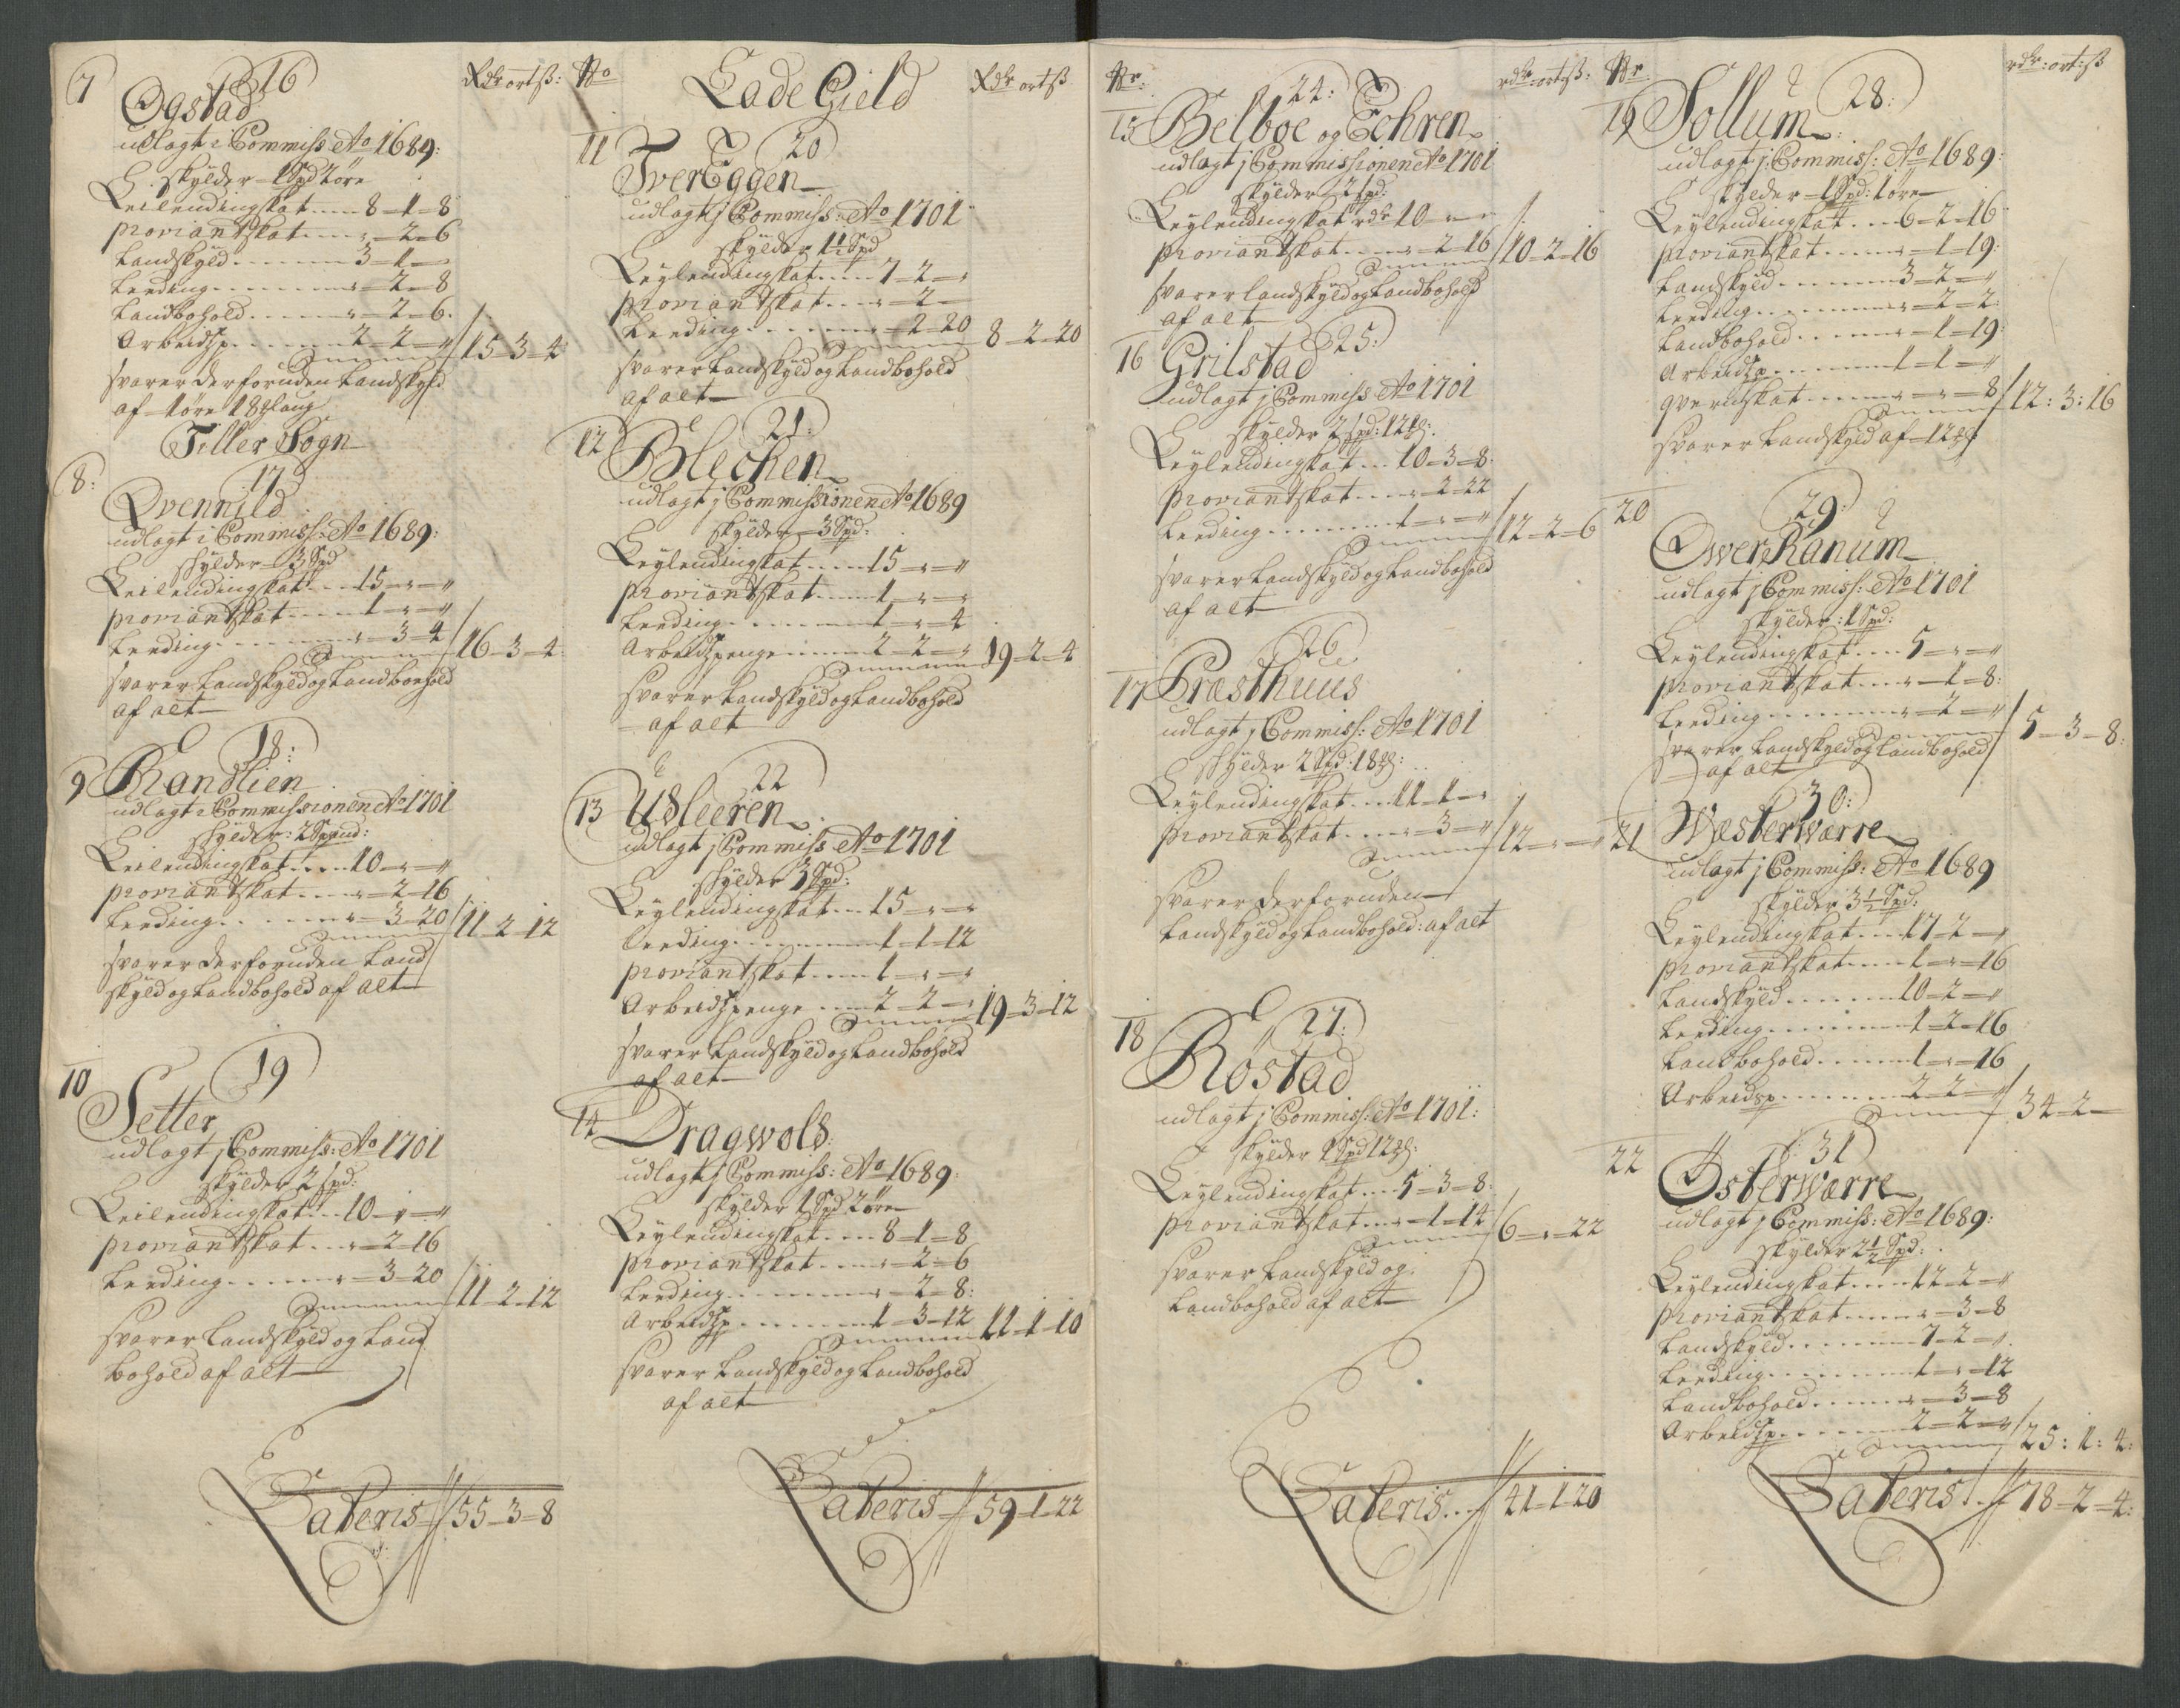 Rdr ortß:
7
16
Ogstad
udlagt i Commiss: Ao 1689:
skylder 1 Spd 2 öre
Leilendingskat.....8-1-8
proviantskat....„-2-6
Landskyld........3-1-
Leeding.........„-2-8
Landbohold......„-2-6.
Arbeidsp........2-2-„
Summa 15-3-4
svarer derforuden Landskyld
af 1 öre 18 #laug
Tiller Sogn
8:
17
Qvennild
udlagt i Commiss: Ao 1689:
skylder 3 Spd
Leilendingskat...15-„-„
proviantskat.....1-„-„
Leeding.........„-3-4
Summa 16-3-4:
svarer Landskyld og Landboehold
af alt
9
18:
Randlien
udlagt i Commissionen Ao 1701
skylder: 2 Spand:
Leilendingskat....10-„-„
proviantskat.....„-2-16
Leeding.........„-3-20
Summa 11-2-12
svarer derforuden Land
skyld og Landbohold af alt
10
19
Setter
udlagt j Commiss: Ao 1701
skylder 2 spd:
Leilendingskat...10-„-„
proviantskat...„-2-16
Leeding.......„-3-20
Summa 11-2-12
svarer Landskyld og Land
bohold af alt
Lateris 55-3-8
No
Lade Gield
Rdr ortß
11
20
TverEggen
udlagt j Commiss: Ao 1701
skylder 1½ Spd
Leylendingskat.....7-2-„
proviantskat....„-2-
Leeding........„-2-20
Summa 8-2-20
svarer Landskyld og Landbohold
af alt
12
21:
Blecken
udlagt j Commissionen Ao 1689
skylder 3 Spd:
Leylendingskat.....15-„-„
proviantskat.....1-„-„
Leeding.........1-„-4
Arbeidspenge.....2-2-„
Summa 19-2-4
svarer Landskyld og Landbohold
af alt
13
22
Usleeren
udlagt j Commiss Ao 1701
skylder 3 Spd:
Leylendingskat...15-„-„
leeding.........1-1-12
proviantskat.....1-„-„
Arbeidspenge....2-2-„
Summa 19-3-12
svarer Landskyld og Landbohold
af alt
14
Dragwold:
udlagt j Commiss: Ao 1689:
skylder 1 Spd 2 öre
Leylendingskat....8-1-8
proviantskat....„-2-6
Leeding........„-2-8:
Arbeidsp........1-3-12
Summa 11-1-10
svarer Landskyld og Landbohold
af alt
Lateris 59-1-22
Nr:
rdr: ortß:
15
24:
Belboe og Echren
udlagt j Commissionen Ao 1701
skylder 2 spd:
Leylendingskat rdr 10-„-„
proviantskat....„-2-16
Summa 10-2-16
svarer landskyld og Landbohold
af alt
16
25:
Grilstad
udlagt j Commiss Ao 1701
skylder 2 spd: 12 #:
Leylendingskat...10-3-8.
proviantskat....„-2-22
Leeding........1-„-„
Summa 12-2-6
svarer Landskyld og Landbohold
af alt
17
26
Præsthuus
udlagt j Commiss: Ao 1701
skylder 2 Spd: 18 #:
Leylendingskat...11-1-„
proviantskat....„-3-„
Summa 12-„-„
svarer derforuden
Landskyld og Landbohold: af alt
18
27:
Röstad
udlagt j Commiss: Ao 1701:
skylder 1 Spd 12 #:
Leylendingskat....5-3-8:
proviantskat...„-1-14
Summa 6-„-22
svarer Landskyld og
Landbohold af alt
Lateris.. 41-1-20
Nr.
rdr: ort: ß
19
28:
Sollum
udlagt j: Commiss: Ao 1689:
skylder 1 Spd: 1 öre
Leylendingskat...6-2-16
proviantskat.....„-1-19:
Landskyld.......3-2-„
Leeding.........„-2-2:
Landbohold......„-1-19:
Arbeidsp........1-1-„
qvernskat.......„-„-8
Summa 12:3:16
svarer Landskyld af 12 #
20
29:
OwerRanum
udlagt j Commiss: Ao 1701
skylder: 1 Spd:
Leylendingskat....5-„-„
proviantskat....„-1-8:
Leeding........„-2-„
5-3-8:
svarer Landskyld og Landbohold
af alt
21
30:
Wæsterwarre
udlagt j Commiss: Ao 1689
skylder 3½ Spd:
Leylendingskat...17-2-„
proviantskat.....1-„-16
Landskyld.......10-2-„
Leeding.........1-2-16
Landbohold......1-„-16
Arbeidsp........2-2-„
Summa 34-2-
22
31
Østerwarre
udlagt j Commiss: Ao 1689:
skylder 2½ Spd:
Leylendingskat....12-2-„
proviantskat.....„-3-8
Landskyld.......7-2-„
Leeding.........1-„-12
Landbohold......„-3-8
Arbeidsp........2-2-„
Summa 25:1:4:
Lateris 78-2-4: